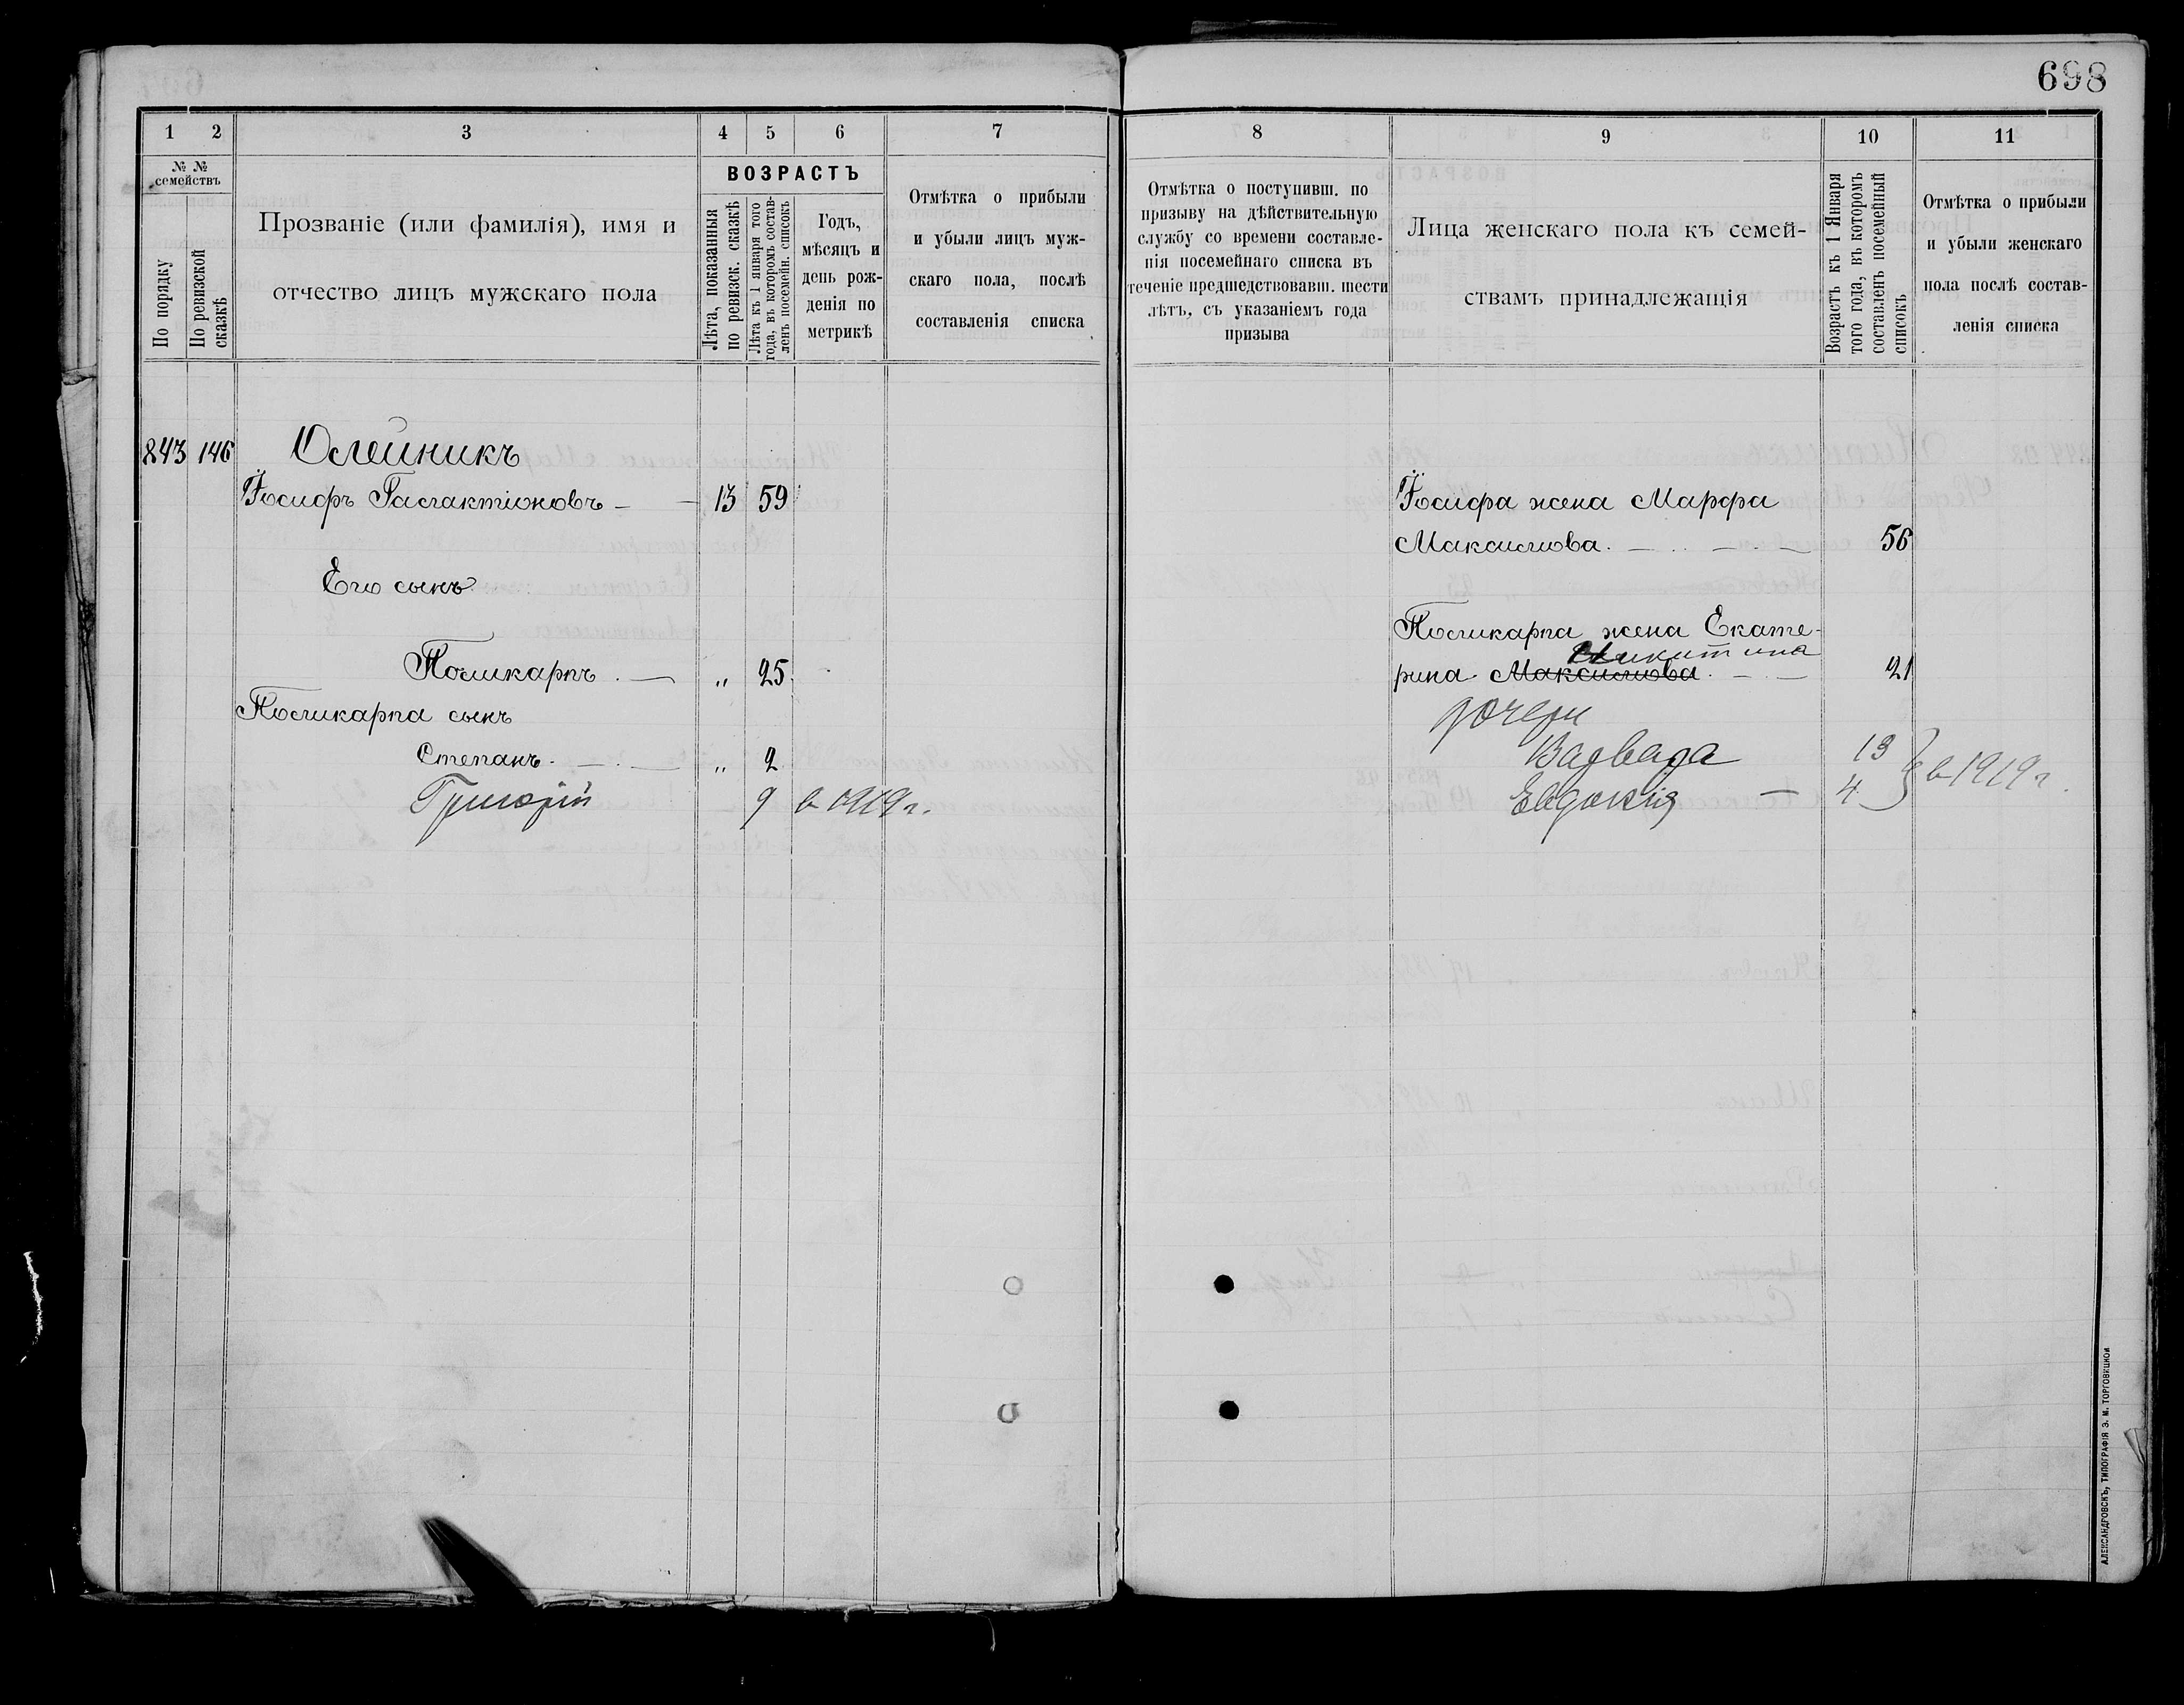 698
1
2
3
4
5
6
7
№ №
семействъ
По порядку
По ревизской
сказкѣ
Прозваніе (или фамилія), имя и
отчество лицъ мужскаго пола
ВОЗРАСТЪ
Лѣта, показанныя
по ревизск. сказкѣ
Лѣта къ 1 января того
года, въ которомъ состав-
ленъ посемейн. списокъ
Годъ,
мѣсяцъ и
день рож-
денія по
метрикѣ
Отмѣтка о прибыли
и убыли лицъ муж-
скаго пола, послѣ
составленія списка
843 146 Олейникъ
Іосифъ Галактіоновъ — 13 59
Его сынъ
Поликарпъ . — „ 25
Поликарпа сынъ
Степанъ . — . — „ 2
Григорій 9 в 1919 г.
8
9
10
11
Отмѣтка о поступивш. по
призыву на дѣйствительную
службу со времени составле-
нія посемейнаго списка въ
теченіе предшедствовавш. шести
лѣтъ, съ указаніемъ года
призыва
Лица женскаго пола къ семей-
ствамъ принадлежащія
Возрастъ къ 1 Января
того года, въ которомъ
составленъ посемейный
списокъ
Отмѣтка о прибыли
и убыли женскаго
пола послѣ состав-
ленія списка
Іосифа жена Марфа
Максимова. — . . — . — 56
Поликарпа жена Екате-
Никитина
рина Максимова . — . — 21
дочери
Варвара 13
Евдокія — 4 } в 1919 г.
АЛЕКСАНДРОВСКЪ, ТИПОГРАФІЯ Э. М. ТОРГОВИЦКОЙ